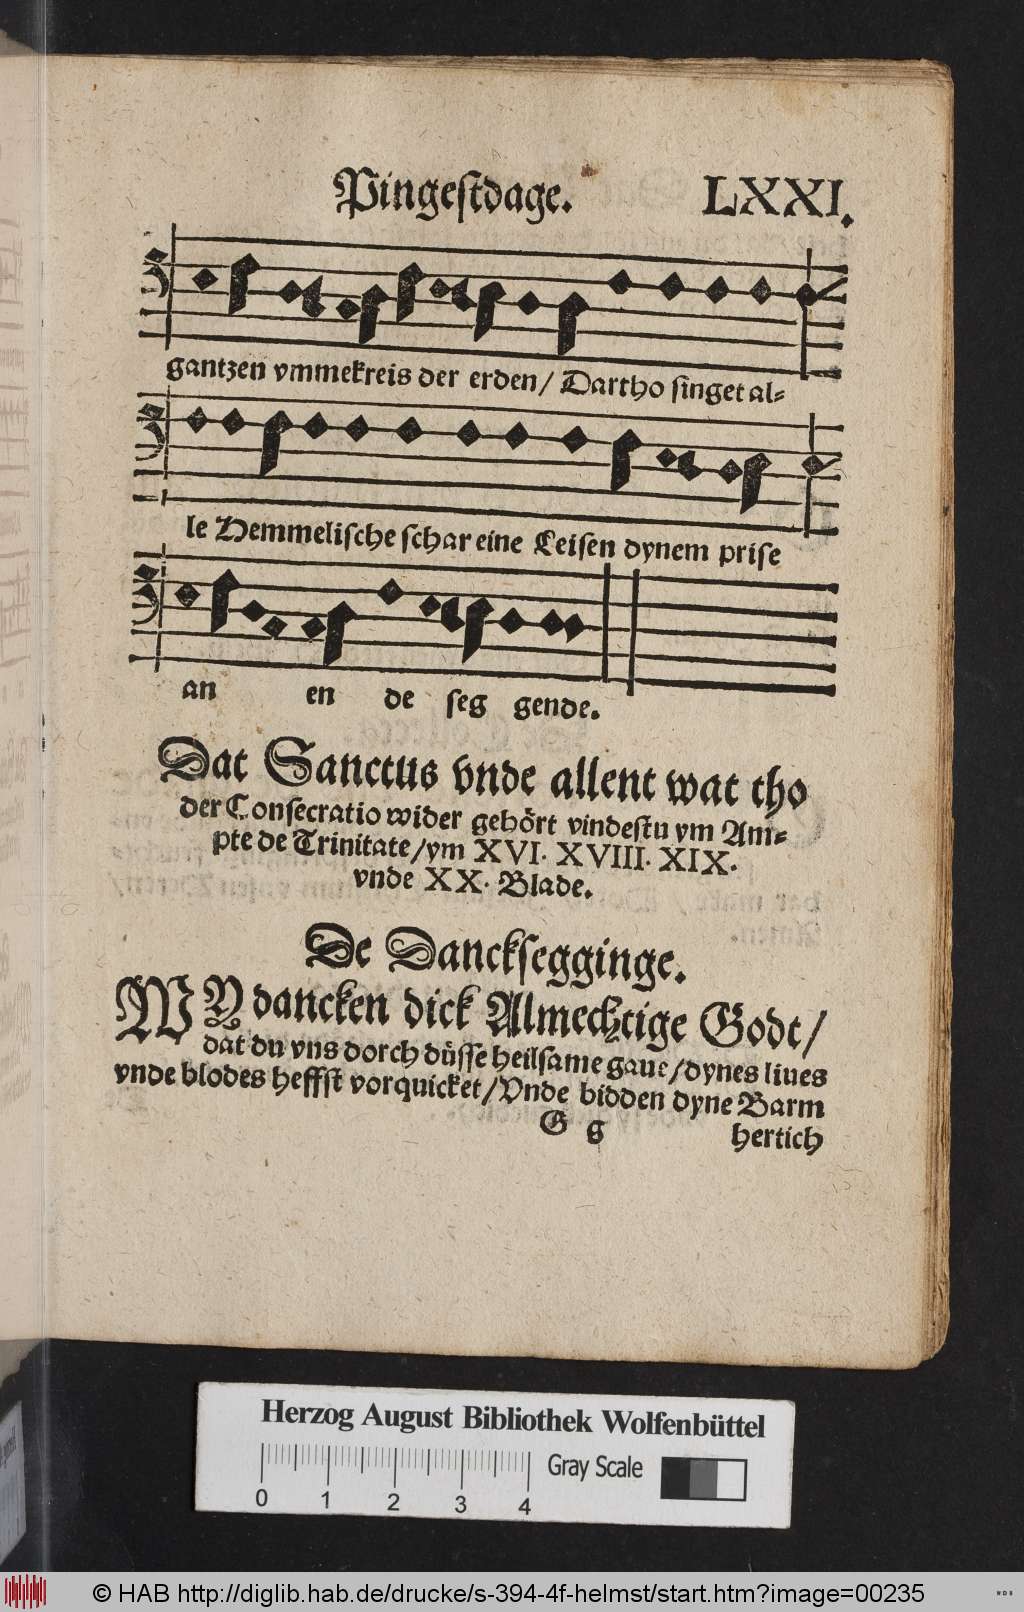 Pingestdage. LXXI.
gantzen vmmekreis der erden/ Dartho singet al-
le Hemmelische schar eine Leisen dynem prise
an en de seg gende.
Dat Sanctus vnde allent wat tho
der Consecratio wider gehört vindestu ym Am-
pte de Trinitate/ym XVI. XVIII. XIX.
vnde XX. Blade.
De Dancksegginge.
WY dancken dick Almechtige Godt/
dat du vns dorch düsse heilsame gaue/dynes liues
vnde blodes heffst vorquicket/Vnde bidden dyne Barm
G g hertich
Herzog August Bibliothek Wolfenbüttel
Gray Scale
0 1 2 3 4
© HAB http://diglib.hab.de/drucke/s-394-4f-helmst/start.htm?image=00235